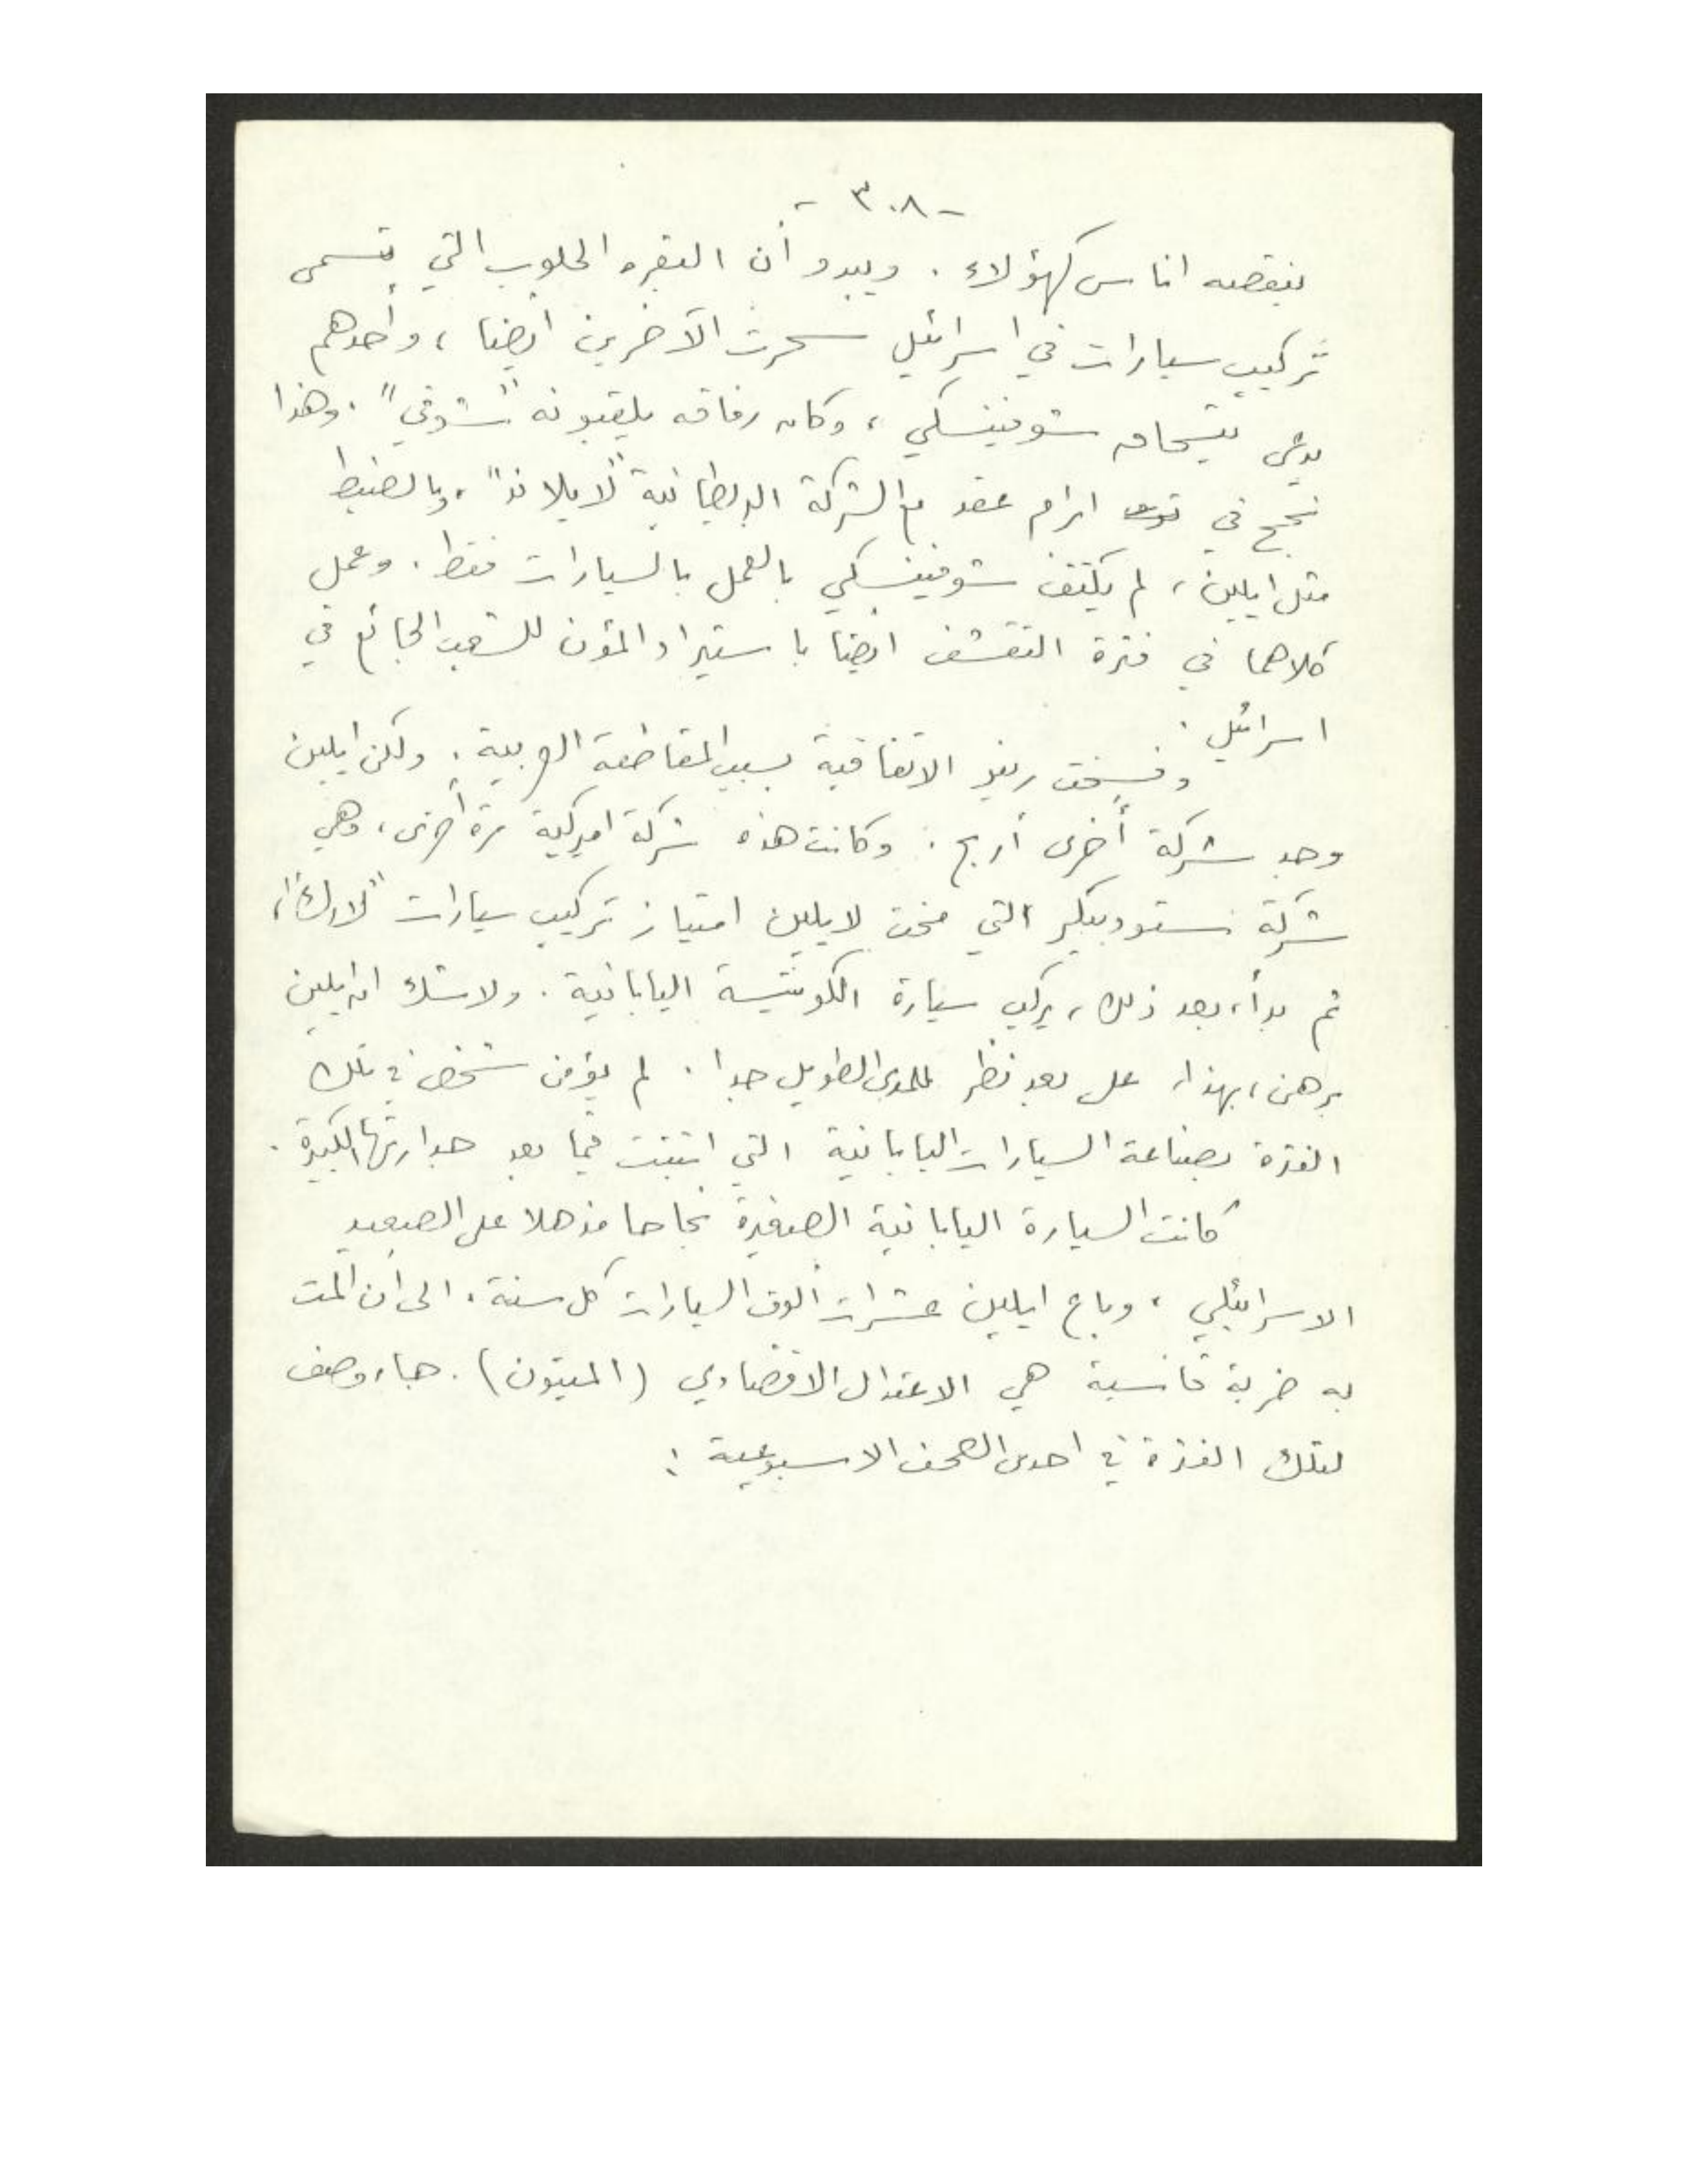 - ٣٠٨ -
ينقصه اناس كهؤلاء . ويبدو أن البقره الحلوب التي تسمى
تركيب سيارات في اسرائيل سحرت الآخرين أيضا ، وأحدهم
يدعى يتسحاق شوفينسكي ، وكان رفاقه يلقبونه "شوقي" . وهذا
نجح في ابرام عقد مع الشركة البريطانية "لايلاند" ، وبالضبط
مثل ايلين ، لم يكتف شوفينسكي بالعمل بالسيارات فقط . وعمل
كلاهما في فترة التقشف ايضا باستيراد المؤن للشعب الجائع في
اسرائيل .
وفسخت رينو الاتفاقية بسبب المقاطعة العربية . ولكن ايلين
وجد شركة أخرى أربح : وكانت هذه شركة اميركية مرة أخرى ، وهي
شركة ستودبيكر التي منحت لايلين امتياز تركيب سيارات "لارك" ،
ثم بدأ ، بعد ذلك ، يركب سيارة الكونتيسة اليابانية . ولا شك ان ايلين
برهن ، بهذا ، على بعد نظر للمدى الطويل جدا . لم يؤمن شخص في تلك
الفترة بصناعة السيارات اليابانية التي اثبتت فيما بعد جدارتها الكبيرة .
كانت السيارة اليابانية الصغيرة نجاحا مذهلا على الصعيد
الاسرائيلي ، وباع ايلين عشرات ألوف السيارات كل سنة ، الى أن ألمت
به ضربة قاسية هي الاعتدال الاقتصادي (الميتون) . جاء وصف
لتلك الفترة في احدى الصحف الاسبوعية :